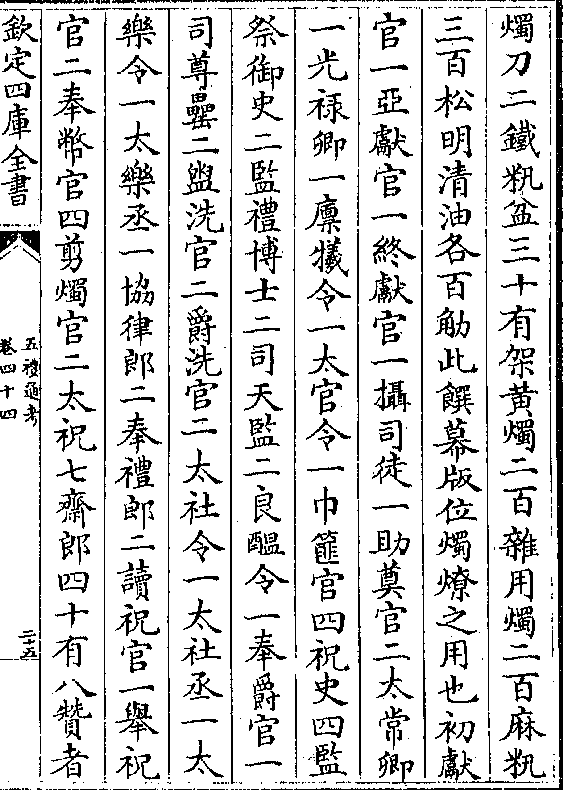 燭刀二鐵籸盆三十有架黃燭二百雜用燭二百麻籸
三百松明清油各百觔此饌幕版位燭燎之用也初獻
官一亞獻官一終獻官一攝司徒一助奠官二太常卿
一光祿卿一廪犧令一太官令一巾篚官四祝史四監
祭御史二監禮博士二司天監二良醖令一奉爵官一
司尊罍二盥洗官二爵洗官二太社令一太社丞一太
樂令一太樂丞一協律郎二奉禮郎二讀祝官一舉祝
官二奉幣官四剪燭官二太祝七齋郎四十有八贊者
欽定四庫全書
五禮通考
卷四十四
二十五